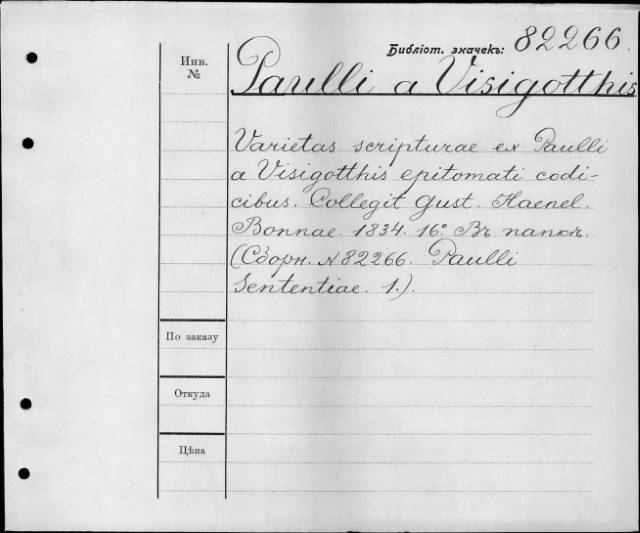 Библіот. значекъ: 82266.
Инв.
№
Paulli a Visigotthis
Varietas scripturae ex Paulli
a Visigotthis epitomati codi-
cibus. Collegit Gust. Haenel.
Bonnae. 1834. 16º. Въ папкѣ.
(Сборн. N 82266. Paulli
Sententiae. 1.).
По заказу
Откуда
Цѣна